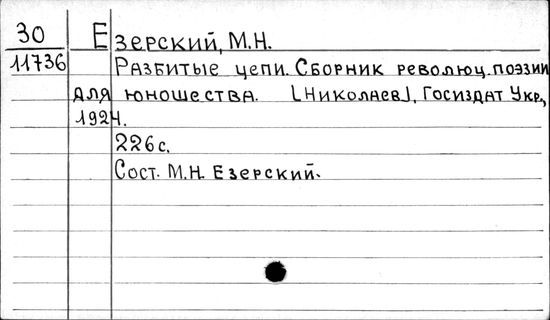 30 Езерский, М.Н.
11736 Разбитые цепи. Сборник революц. поэзии
для юношества. [Николаев], Госиздат Укр.,
1924.
226 с.
Сост. М.Н. Езерский.